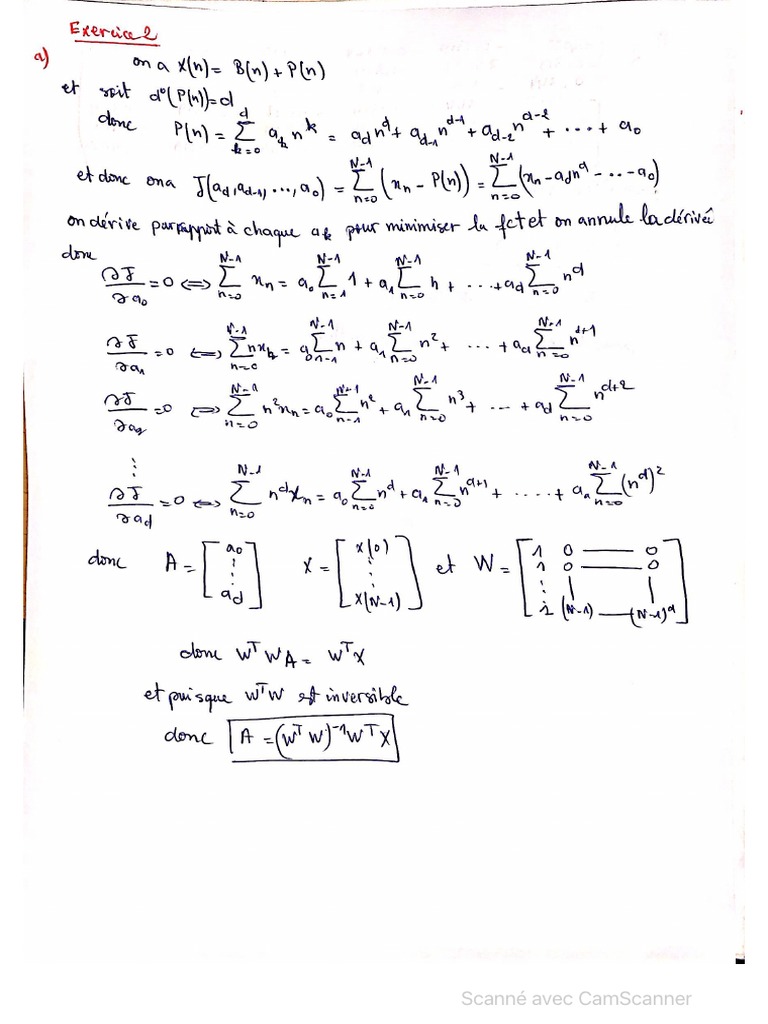 Exercice 2
a) on a X(n) = B(n) + P(n)
et soit d°(P(n)) = d
donc P(n) = ∑_{k=0}^{d} a_k n^k = a_d n^d + a_{d-1} n^{d-1} + a_{d-2} n^{d-2} + ... + a_0
et donc on a J(a_d, a_{d-1}, ..., a_0) = ∑_{n=0}^{N-1} (x_n - P(n)) = ∑_{n=0}^{N-1} (x_n - a_d n^d - ... - a_0)
on dérive par rapport à chaque a_k pour minimiser la fct et on annule la dérivée
donc
∂J/∂a_0 = 0 ⇔ ∑_{n=0}^{N-1} x_n = a_0 ∑_{n=1}^{N-1} 1 + a_1 ∑_{n=0}^{N-1} n + ... + a_d ∑_{n=0}^{N-1} n^d
∂J/∂a_1 = 0 ⇔ ∑_{n=0}^{N-1} n x_n = a_0 ∑_{n=1}^{N-1} n + a_1 ∑_{n=0}^{N-1} n^2 + ... + a_d ∑_{n=0}^{N-1} n^{d+1}
∂J/∂a_2 = 0 ⇔ ∑_{n=0}^{N-1} n^2 x_n = a_0 ∑_{n=1}^{N-1} n^2 + a_1 ∑_{n=0}^{N-1} n^3 + ... + a_d ∑_{n=0}^{N-1} n^{d+2}
⋮
∂J/∂a_d = 0 ⇔ ∑_{n=0}^{N-1} n^d x_n = a_0 ∑_{n=0}^{N-1} n^d + a_1 ∑_{n=0}^{N-1} n^{d+1} + ..... + a_n ∑_{n=0}^{N-1} (n^d)^2
donc A = [a_0 ⋮ a_d] X = [x(0) ⋮ x(N-1)] et W = [1 0 — 0 ; 1 0 — 0 ; ⋮ | | ; 1 (N-1) — (N-1)^d]
donc W^T W A = W^T X
et puisque W^T W est inversible
donc A = (W^T W)^{-1} W^T X
Scanné avec CamScanner